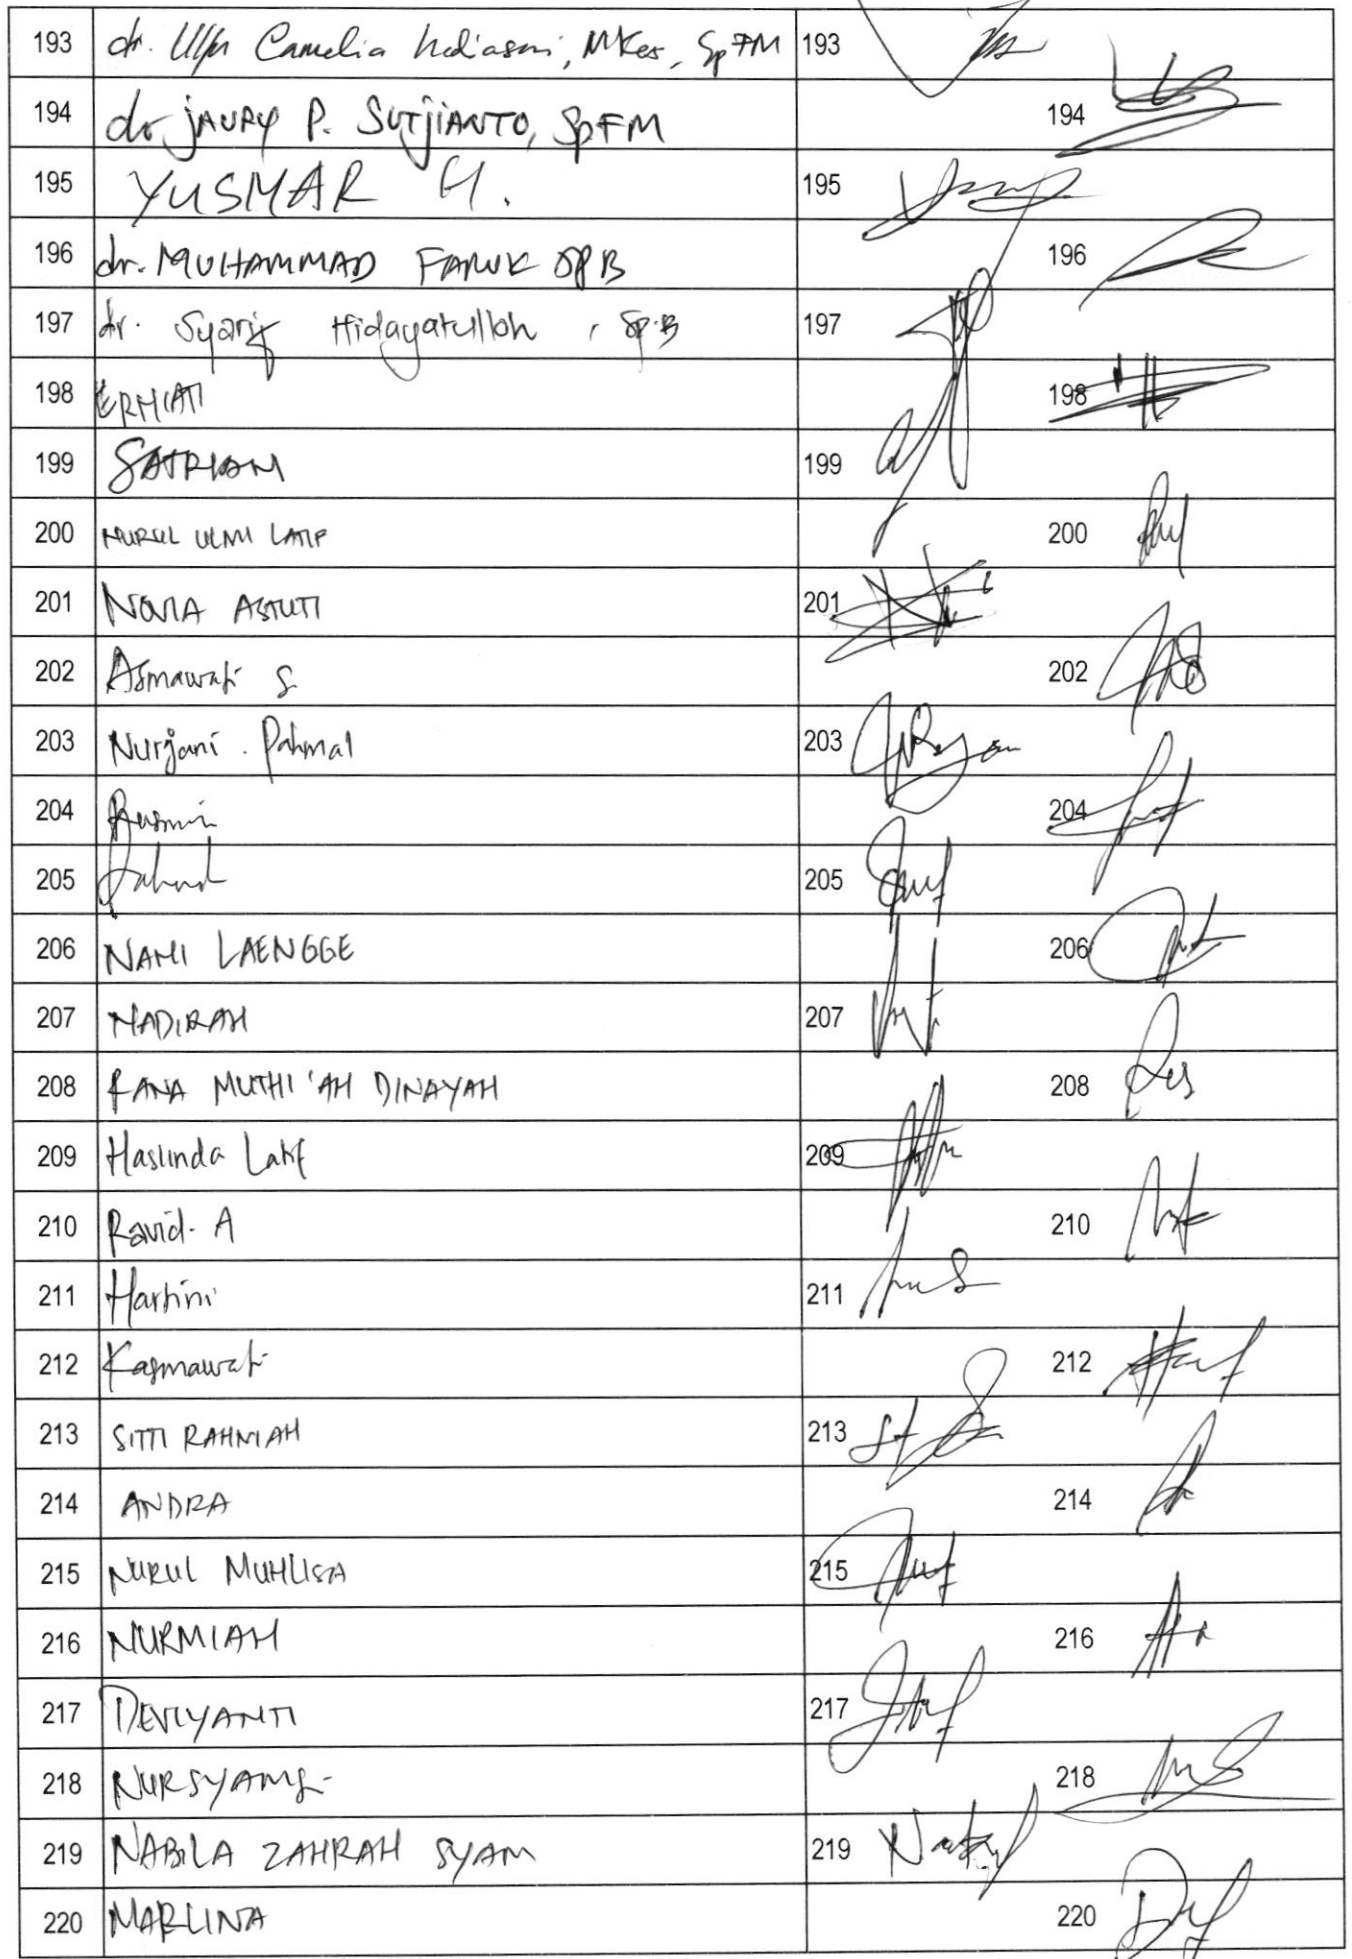 193 dr. Ulfa Camelia, MKes, SpFM 193
194 dr JAURY P. SUTJIANTO, SpFM 194
195 YUSMAR H. 195
196 dr. MUHAMMAD FARUK SPB 196
197 dr. Syarif Hidayatullah, Sp.B 197
198 ERMIATI 198
199 SATRIANI 199
200 NURUL ULMI LATIF 200
201 NOVIA ASTUTI 201
202 Asmawati S. 202
203 Nurjani. Rahmal 203
204 Rusmin 204
205 205
206 NAMI LAENGGE 206
207 NADIRAH 207
208 RANA MUTHI'AH DINAYAH 208
209 Haslinda Latif 209
210 Ravid. A 210
211 Hartini 211
212 Kasmawati 212
213 SITTI RAHMIAH 213
214 ANDRA 214
215 NURUL MUHLISA 215
216 NURMIAH 216
217 DEVIYANTI 217
218 NURSYAMSI 218
219 NABILA ZAHRAH SYAM 219
220 MARLINA 220